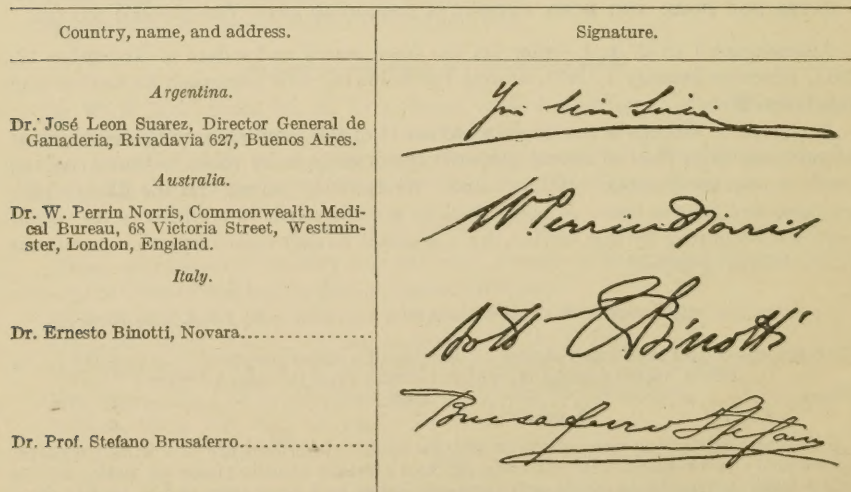 Country, name, and address.
Signature.
Argentina.
Dr. José Leon Suarez, Director General de
Ganaderia, Rivadavia 627, Buenos Aires.
José León Suárez
Australia.
Dr. W. Perrin Norris, Commonwealth Medi-
cal Bureau, 68 Victoria Street, Westmin-
ster, London, England.
W Perrin Norris
Italy.
Dr. Ernesto Binotti, Novara................
Dott E Binotti
Dr. Prof. Stefano Brusaferro................
Brusaferro Stefano